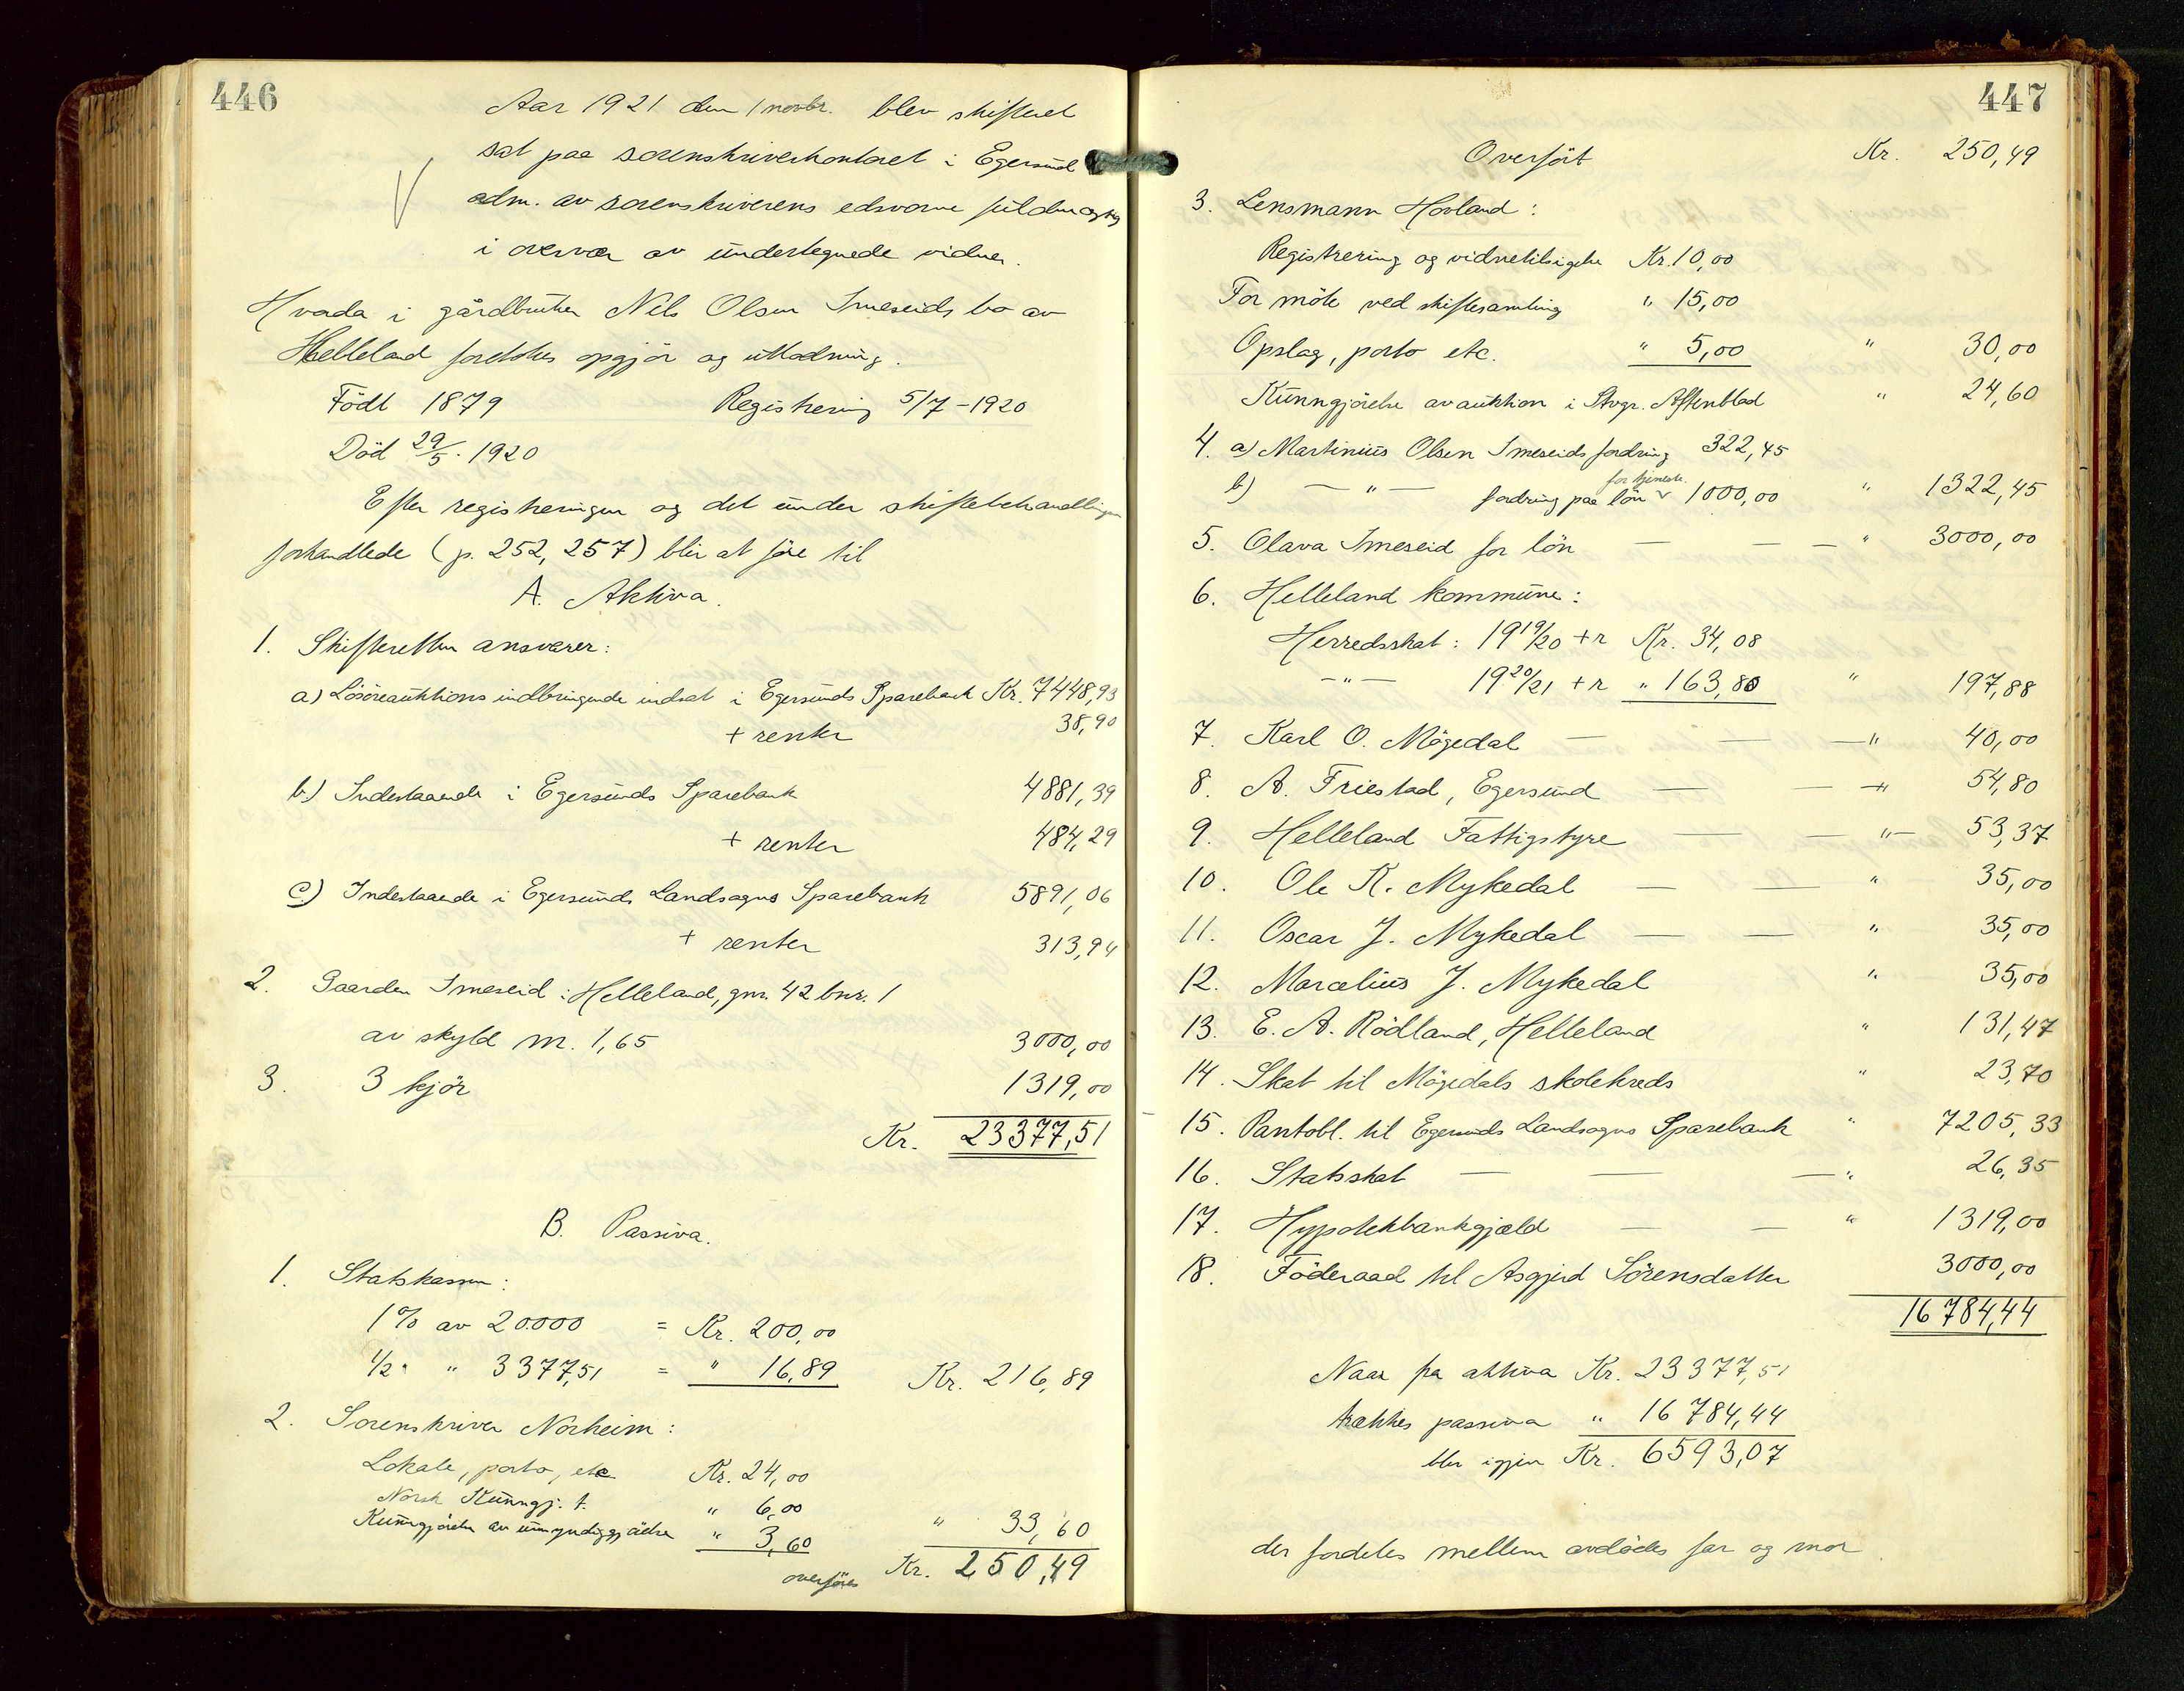 446
Aar 1921 den 1 novbr. blev skifteret
sat paa sorenskriverkontoret i Egersund
adm. av sorenskriverens edsvorne fuldmægtig
i overvær av undertegnede vidner.
Hvorda i gårdbruker Nils Olsen Imeseids bo av
Helleland foretokes opgjør og utlodning.
Född 1879 Registrering 5/7 - 1920
Död 29/5. 1920
Efter registreringen og det under skiftebehandlingen
forhandlede (p. 252, 257) blir at føre til
A. Aktiva.
1. Skifteretten ansvarer:
a) Lösöreauktions indbringende indsat i Egersunds Sparebank Kr. 7448,93
+ renter 38,90
b.) Indestaaende i Egersunds Sparebank 4881,39
+ renter 484,29
c.) Indestaaende i Egersunds Landsogns Sparebank 5891,06
+ renter 313,94
2. Gaarden Imeseid i Helleland, gnr. 42 bnr. 1
av skyld m. 1,65 3000,00
3. 3 kjör 1319,00
Kr. 23377,51
B. Passiva.
1. Statskassen:
1% av 20000 = Kr. 200,00
1/2 " " 3377,51 = " 16,89 Kr. 216,89
2. Sorenskriver Norheim:
Lokale, porto, etc Kr. 24,00
Norsk Kunngj. t. " 6,00
Kunngjörelse av umyndiggjörelse " 3,60 " 33,60
overføres Kr. 250,49
447
Overført Kr. 250,49
3. Lensmann Hovland:
Registrering og vidnetilsigelse Kr. 10,00
For möte ved skiftesamling " 15,00
Opslag, porto etc. " 5,00 " 30,00
Kunngjörelse av auktion i Stvgr. Aftenblad " 24,60
4. a) Martinius Olsen Imeseids fordring 322,45
for tjeneste
b) — " — fordring paa lön v 1000,00 " 1322,45
5. Olava Imeseid for lön — — — " 3000,00
6. Helleland kommune:
Herredsskat: 19 19/20 + r Kr. 34,08
— " — 19 20/21 + r " 163,80 " 197,88
7. Karl O. Mögedal — — — " 40,00
8. A. Friestad, Egersund — — " 54,80
9. Helleland Fattigstyre — — " — 53,37
10. Ole K. Mykedal — — " 35,00
11. Oscar J. Mykedal — — " 35,00
12. Marcelius J. Mykedal " 35,00
13. E. A. Rödland, Helleland " 131,47
14. Skat til Mögedals skolekreds " 23,70
15. Pantobl. til Egersunds Landsogns Sparebank " 7205,33
16. Statsskat — — — " 26,35
17. Hypotekbankgjæld — — " 1319,00
18. Föderaad til Asgjerd Sörensdatter 3000,00
16784,44
Naar fra aktiva Kr. 23377,51
trækkes passiva " 16784,44
blir igjen Kr. 6593,07
der fordeles mellem avdödes far og mor.